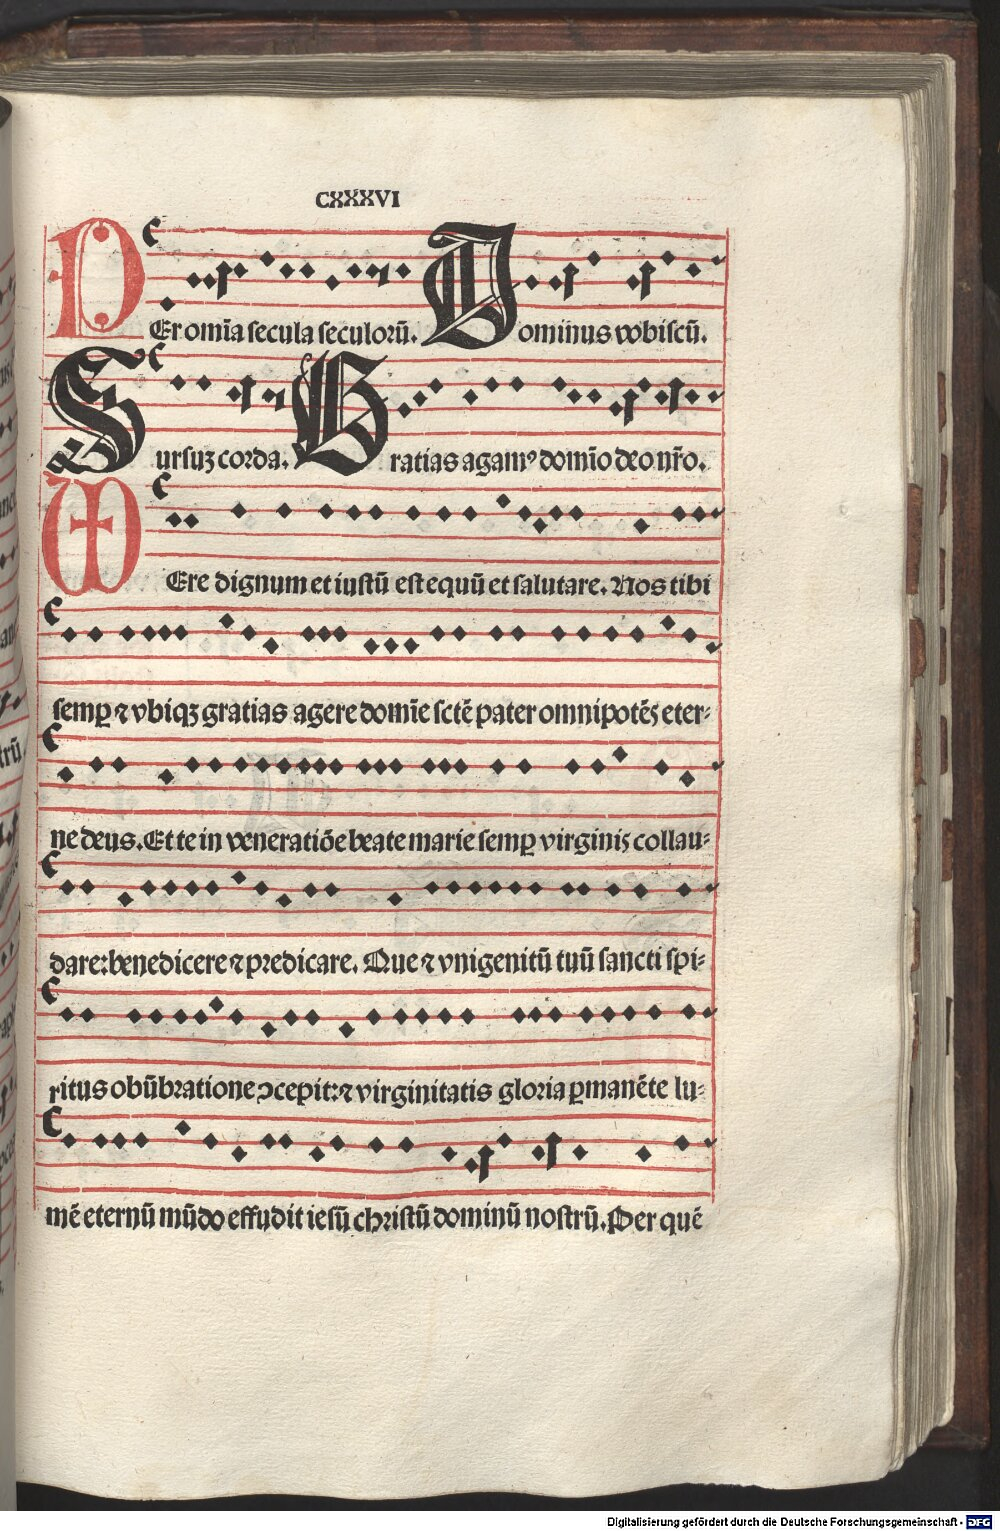 CXXXVI
PEr om̄ia secula seculoꝝ̄. Dominus vobiscū.
Sursuꝫ corda. Gratias agamꝰ domīo deo nr̄o.
VEre dignum et iustū est equū et salutare. Nos tibi
semꝑ ⁊ vbiqꝫ gratias agere domīe sctē pater omnipotēs eter⸗
ne deus. Et te in veneratiōe beate marie semꝑ virginis collau⸗
dare: benedicere ⁊ predicare. Que ⁊ vnigenitū tuū sancti spi⸗
ritus obūbratione ↄcepit: ⁊ virginitatis gloria ꝑmanēte lu⸗
mē eternū mūdo effudit iesū christū dominū nostrū. Per quē
Digitalisierung gefördert durch die Deutsche Forschungsgemeinschaft - DFG